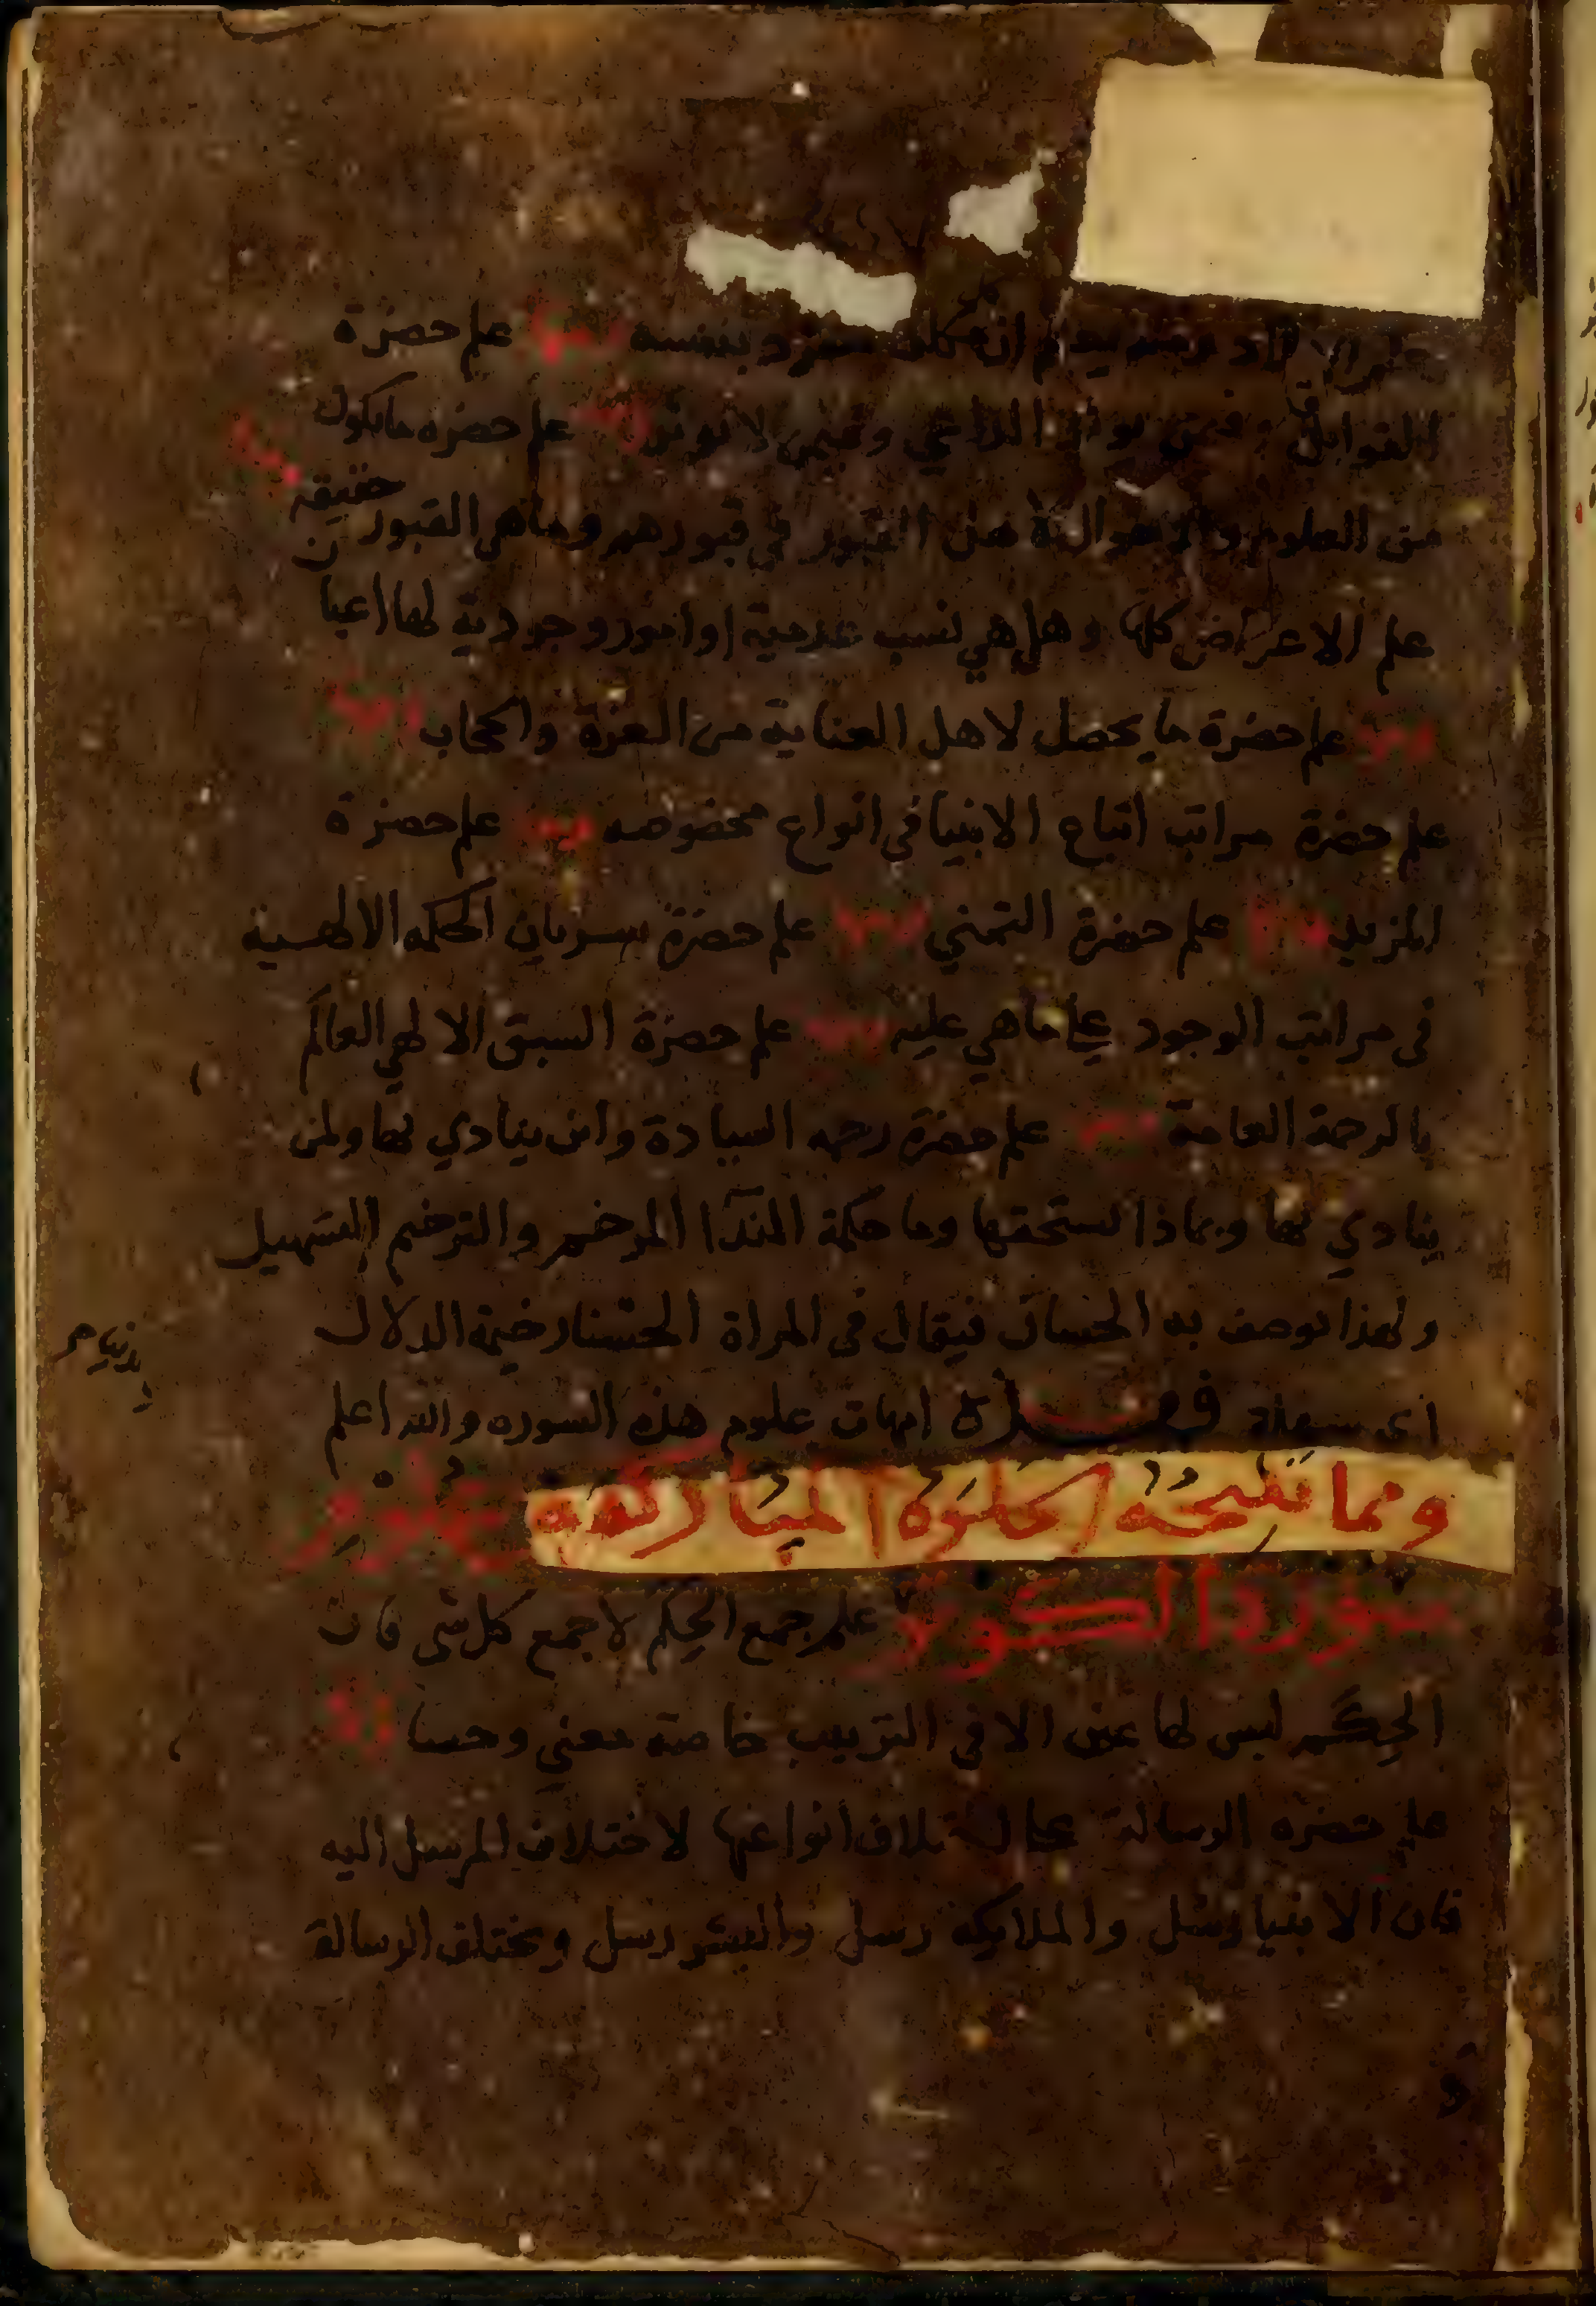 انه كل منفرد بنفسه ومنها علم حضرة
القوابل فيمن يؤثر الداعي وفيمن لا يوثر ومنها علم حضره ما يكون
من العلوم والاهوال القبور في قبورهم وما هي القبور حقيقه ومنها
علم الاعراض كلها وهل هي نسب عدمية او امور وجودية لها اعيا ن
ومنها علم حضرة ما يحصل لاهل العناية من العزة والحجاب ومنها
علم حضرة مراتب اتباع الانبيا فى انواع مخصوصه ومنها علم حضرة
المزيد ومنها علم حضرة التمني ومنها علم حضرة سريان الحكمه الالهسية
فى مراتب الوجود على ما هي عليه ومنها علم حضرة السبق الالهي العالم
بالرحمة العامة ومنها علم حضرة رحمه السيادة واين ينادي بها ولمن
ينادي بها وبماذا يستحقها وما حكمة الندآ المرخم والترخيم التسهيل
ولهذا يوصف به الحسان فيقال فى المراة الحسنا رخيمة الدلال
اى سهلة فهذه امهات علوم هذه السوره والله اعلم
ومما تفيحه الخلوة المباركه علوم
سورة الكوثر علم جمع الحِكَم لا جمع كل شى فان
الحِكَم ليس لها عين الا في الترتيب خاصة معني وحسا ومنها
علم حضره الرسالة انواعها لاختلاف المرسل اليه
فان الانبيا رسل والملايكه رسل والبشر رسل ويختلف الرسالة